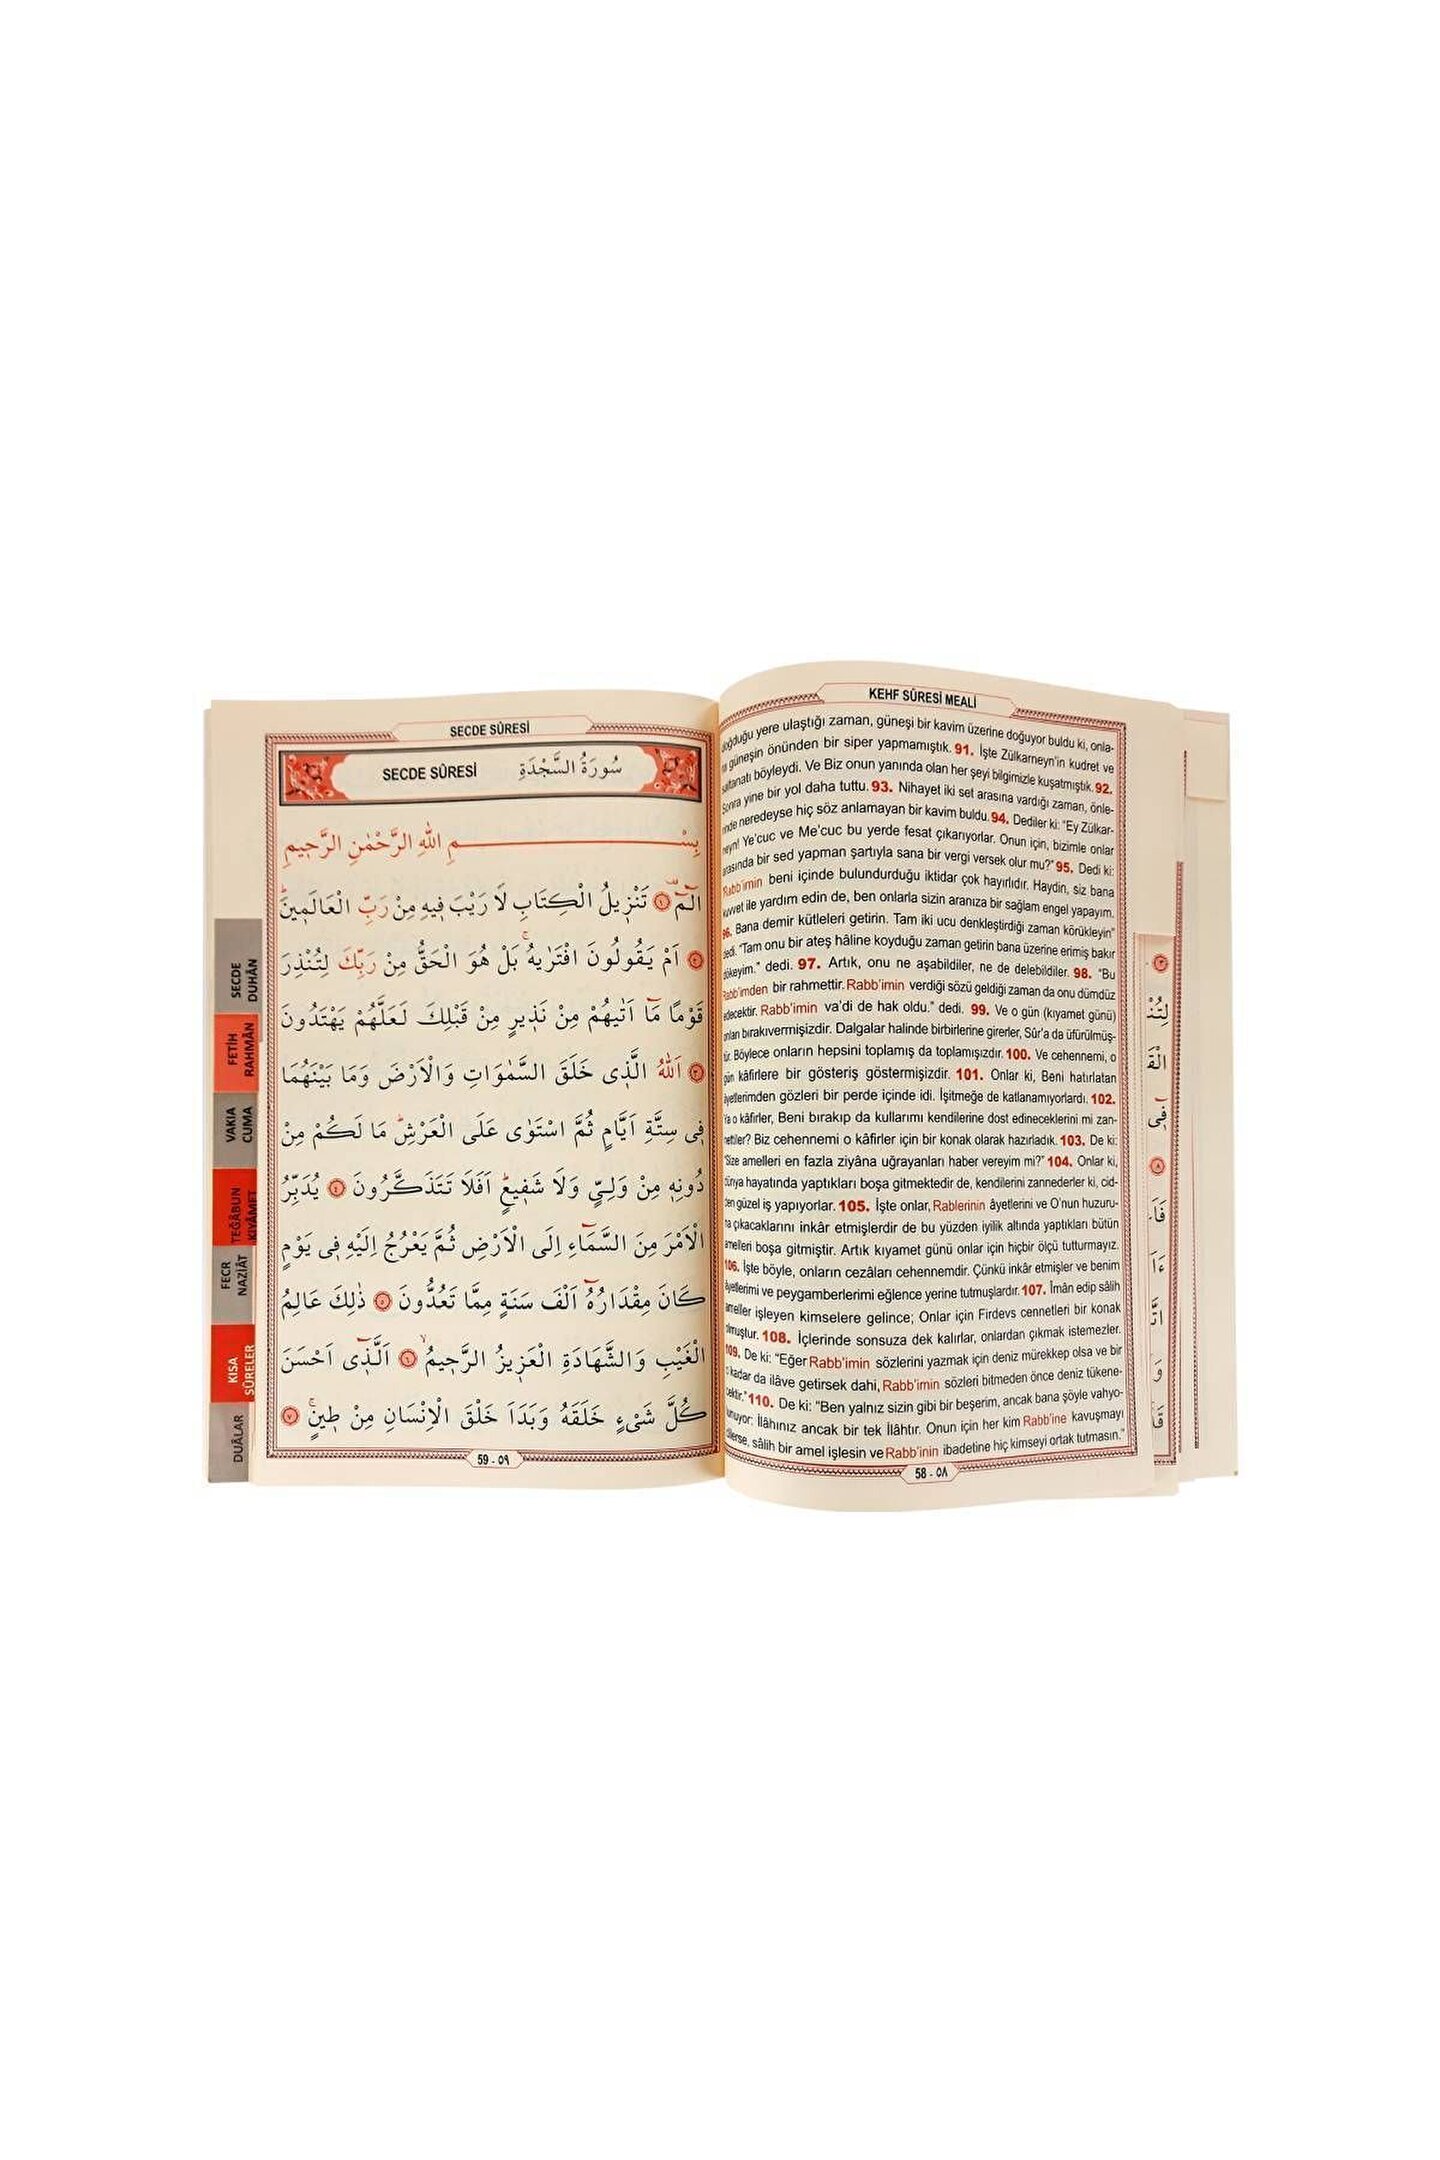 KEHF SÛRESİ MEALİ
doğduğu yere ulaştığı zaman, güneşi bir kavim üzerine doğuyor buldu ki, onla-
güneşin önünden bir siper yapmamıştık. 91. İşte Zülkarneyn'in kudret ve
saltanatı böyleydi. Ve Biz onun yanında olan her şeyi bilgimizle kuşatmıştık. 92.
Sonra yine bir yol daha tuttu. 93. Nihayet iki set arasına vardığı zaman, önle-
rinde neredeyse hiç söz anlamayan bir kavim buldu. 94. Dediler ki: "Ey Zülkar-
neyn! Ye'cuc ve Me'cuc bu yerde fesat çıkarıyorlar. Onun için, bizimle onlar
arasında bir sed yapman şartıyla sana bir vergi versek olur mu?" 95. Dedi ki:
"Rabb'imin beni içinde bulundurduğu iktidar çok hayırlıdır. Haydin, siz bana
kuvvet ile yardım edin de, ben onlarla sizin aranıza bir sağlam engel yapayım.
96. Bana demir kütleleri getirin. Tam iki ucu denkleştirdiği zaman körükleyin"
dedi. "Tam onu bir ateş hâline koyduğu zaman getirin bana üzerine erimiş bakır
dökeyim." dedi. 97. Artık, onu ne aşabildiler, ne de delebildiler. 98. "Bu
Rabb'imden bir rahmettir. Rabb'imin verdiği sözü geldiği zaman da onu dümdüz
edecektir. Rabb'imin va'di de hak oldu." dedi. 99. Ve o gün (kıyamet günü)
onları bırakıvermişizdir. Dalgalar halinde birbirlerine girerler, Sûr'a da üfürülmüş-
tür. Böylece onların hepsini toplamış da toplamışızdır. 100. Ve cehennemi, o
gün kâfirlere bir gösteriş göstermişizdir. 101. Onlar ki, Beni hatırlatan
âyetlerimden gözleri bir perde içinde idi. İşitmeğe de katlanamıyorlardı. 102.
Ya o kâfirler, Beni bırakıp da kullarımı kendilerine dost edineceklerini mi zan-
nettiler? Biz cehennemi o kâfirler için bir konak olarak hazırladık. 103. De ki:
"Size amelleri en fazla ziyâna uğrayanları haber vereyim mi?" 104. Onlar ki,
dünya hayatında yaptıkları boşa gitmektedir de, kendilerini zannederler ki, cid-
den güzel iş yapıyorlar. 105. İşte onlar, Rablerinin âyetlerini ve O'nun huzuru-
na çıkacaklarını inkâr etmişlerdir de bu yüzden iyilik altında yaptıkları bütün
amelleri boşa gitmiştir. Artık kıyamet günü onlar için hiçbir ölçü tutturmayız.
106. İşte böyle, onların cezâları cehennemdir. Çünkü inkâr etmişler ve benim
âyetlerimi ve peygamberlerimi eğlence yerine tutmuşlardır. 107. Îmân edip sâlih
ameller işleyen kimselere gelince; Onlar için Firdevs cennetleri bir konak
olmuştur. 108. İçlerinde sonsuza dek kalırlar, onlardan çıkmak istemezler.
109. De ki: "Eğer Rabb'imin sözlerini yazmak için deniz mürekkep olsa ve bir
o kadar da ilâve getirsek dahi, Rabb'imin sözleri bitmeden önce deniz tükene-
cektir." 110. De ki: "Ben yalnız sizin gibi bir beşerim, ancak bana şöyle vahyo-
lunuyor: İlâhınız ancak bir tek İlâhtır. Onun için her kim Rabb'ine kavuşmayı
dilerse, sâlih bir amel işlesin ve Rabb'inin ibadetine hiç kimseyi ortak tutmasın."
58 - ٥٨
SECDE SÛRESİ
SECDE SÛRESİ سُورَةُ السَّجْدَةِ
بِسْمِ اللهِ الرَّحْمٰنِ الرَّحٖيمِ
الٓمٓۚ ﴿١﴾ تَنْزٖيلُ الْكِتَابِ لَا رَيْبَ فٖيهِ مِنْ رَبِّ الْعَالَمٖينَۜ
﴿٢﴾ اَمْ يَقُولُونَ افْتَرٰيهُۚ بَلْ هُوَ الْحَقُّ مِنْ رَبِّكَ لِتُنْذِرَ
قَوْمًا مَٓا اَتٰيهُمْ مِنْ نَذٖيرٍ مِنْ قَبْلِكَ لَعَلَّهُمْ يَهْتَدُونَ
﴿٣﴾ اَللهُ الَّذٖى خَلَقَ السَّمٰوَاتِ وَالْاَرْضَ وَمَا بَيْنَهُمَا
فٖى سِتَّةِ اَيَّامٍ ثُمَّ اسْتَوٰى عَلَى الْعَرْشِۜ مَا لَكُمْ مِنْ
دُونِهٖ مِنْ وَلِىٍّ وَلَا شَفٖيعٍۜ اَفَلَا تَتَذَكَّرُونَ ﴿٤﴾ يُدَبِّرُ
الْاَمْرَ مِنَ السَّمَٓاءِ اِلَى الْاَرْضِ ثُمَّ يَعْرُجُ اِلَيْهِ فٖى يَوْمٍ
كَانَ مِقْدَارُهُٓ اَلْفَ سَنَةٍ مِمَّا تَعُدُّونَ ﴿٥﴾ ذٰلِكَ عَالِمُ
الْغَيْبِ وَالشَّهَادَةِ الْعَزٖيزُ الرَّحٖيمُۙ ﴿٦﴾ اَلَّذٖٓى اَحْسَنَ
كُلَّ شَىْءٍ خَلَقَهُ وَبَدَاَ خَلْقَ الْاِنْسَانِ مِنْ طٖينٍۚ ﴿٧﴾
59 - ٥٩
SECDE
DUHÂN
FETİH
RAHMÂN
VAKIA
CUMA
TEĞÂBUN
KIYÂMET
FECR
NAZİÂT
KISA
SÛRELER
DUÂLAR